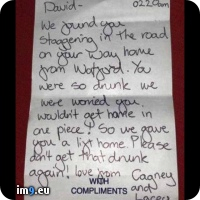 David- 0220am
We found you
staggering in the road
on your way home
from Watford. You
were so drunk we
were worried you
wouldn't get home in
one piece! So we gave
you a lift home. Please
don't get that drunk
again! love from Cagney
and
Lacey
WITH
COMPLIMENTS
im9.eu